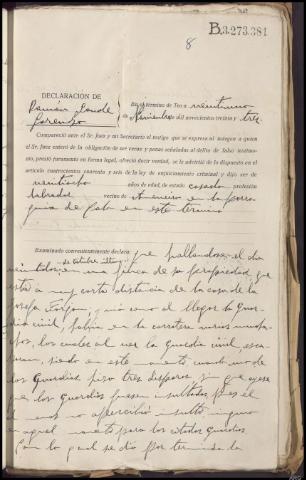 B.3.273.381
8
DECLARACION DE
Ramón Conde
Lorenzo
En el término de Teo a veintiuno
de Noviembre de mil novecientos treinta y tres.
Compareció ante el Sr. Juez y mi Secretario el testigo que se expresa al margen a quien
el Sr. Juez enteró de la obligación de ser veraz y penas señaladas al delito de falso testimo-
nio, prestó juramento en forma legal, ofreció decir verdad, se le advirtió de lo dispuesto en el
artículo cuatrocientos cuarenta y seis de la ley de enjuiciamiento criminal, y dijo ser de
veintiocho años de edad, de estado casado profesión
labrador vecino de en la parro
quia de en este término
Examinado convenientemente declara: que hallandose el dia
veintidos de octubre ultimo, en una finca de su propiedad, que
está a muy corta distancia de la casa de la
Josefa vió como al llegar la Guar-
dia civil, habia en la carretera varios mucha-
chos, los cuales al ver la Guardia civil esca-
paron, siendo en este momento cuando uno de
los Guardias hizo tres disparos sin que oyese
que los guardias fuesen insultados, pues el
no apercibió insulto ninguno
en aquel momento para los citados guardias
Con lo cual se dio por terminada la